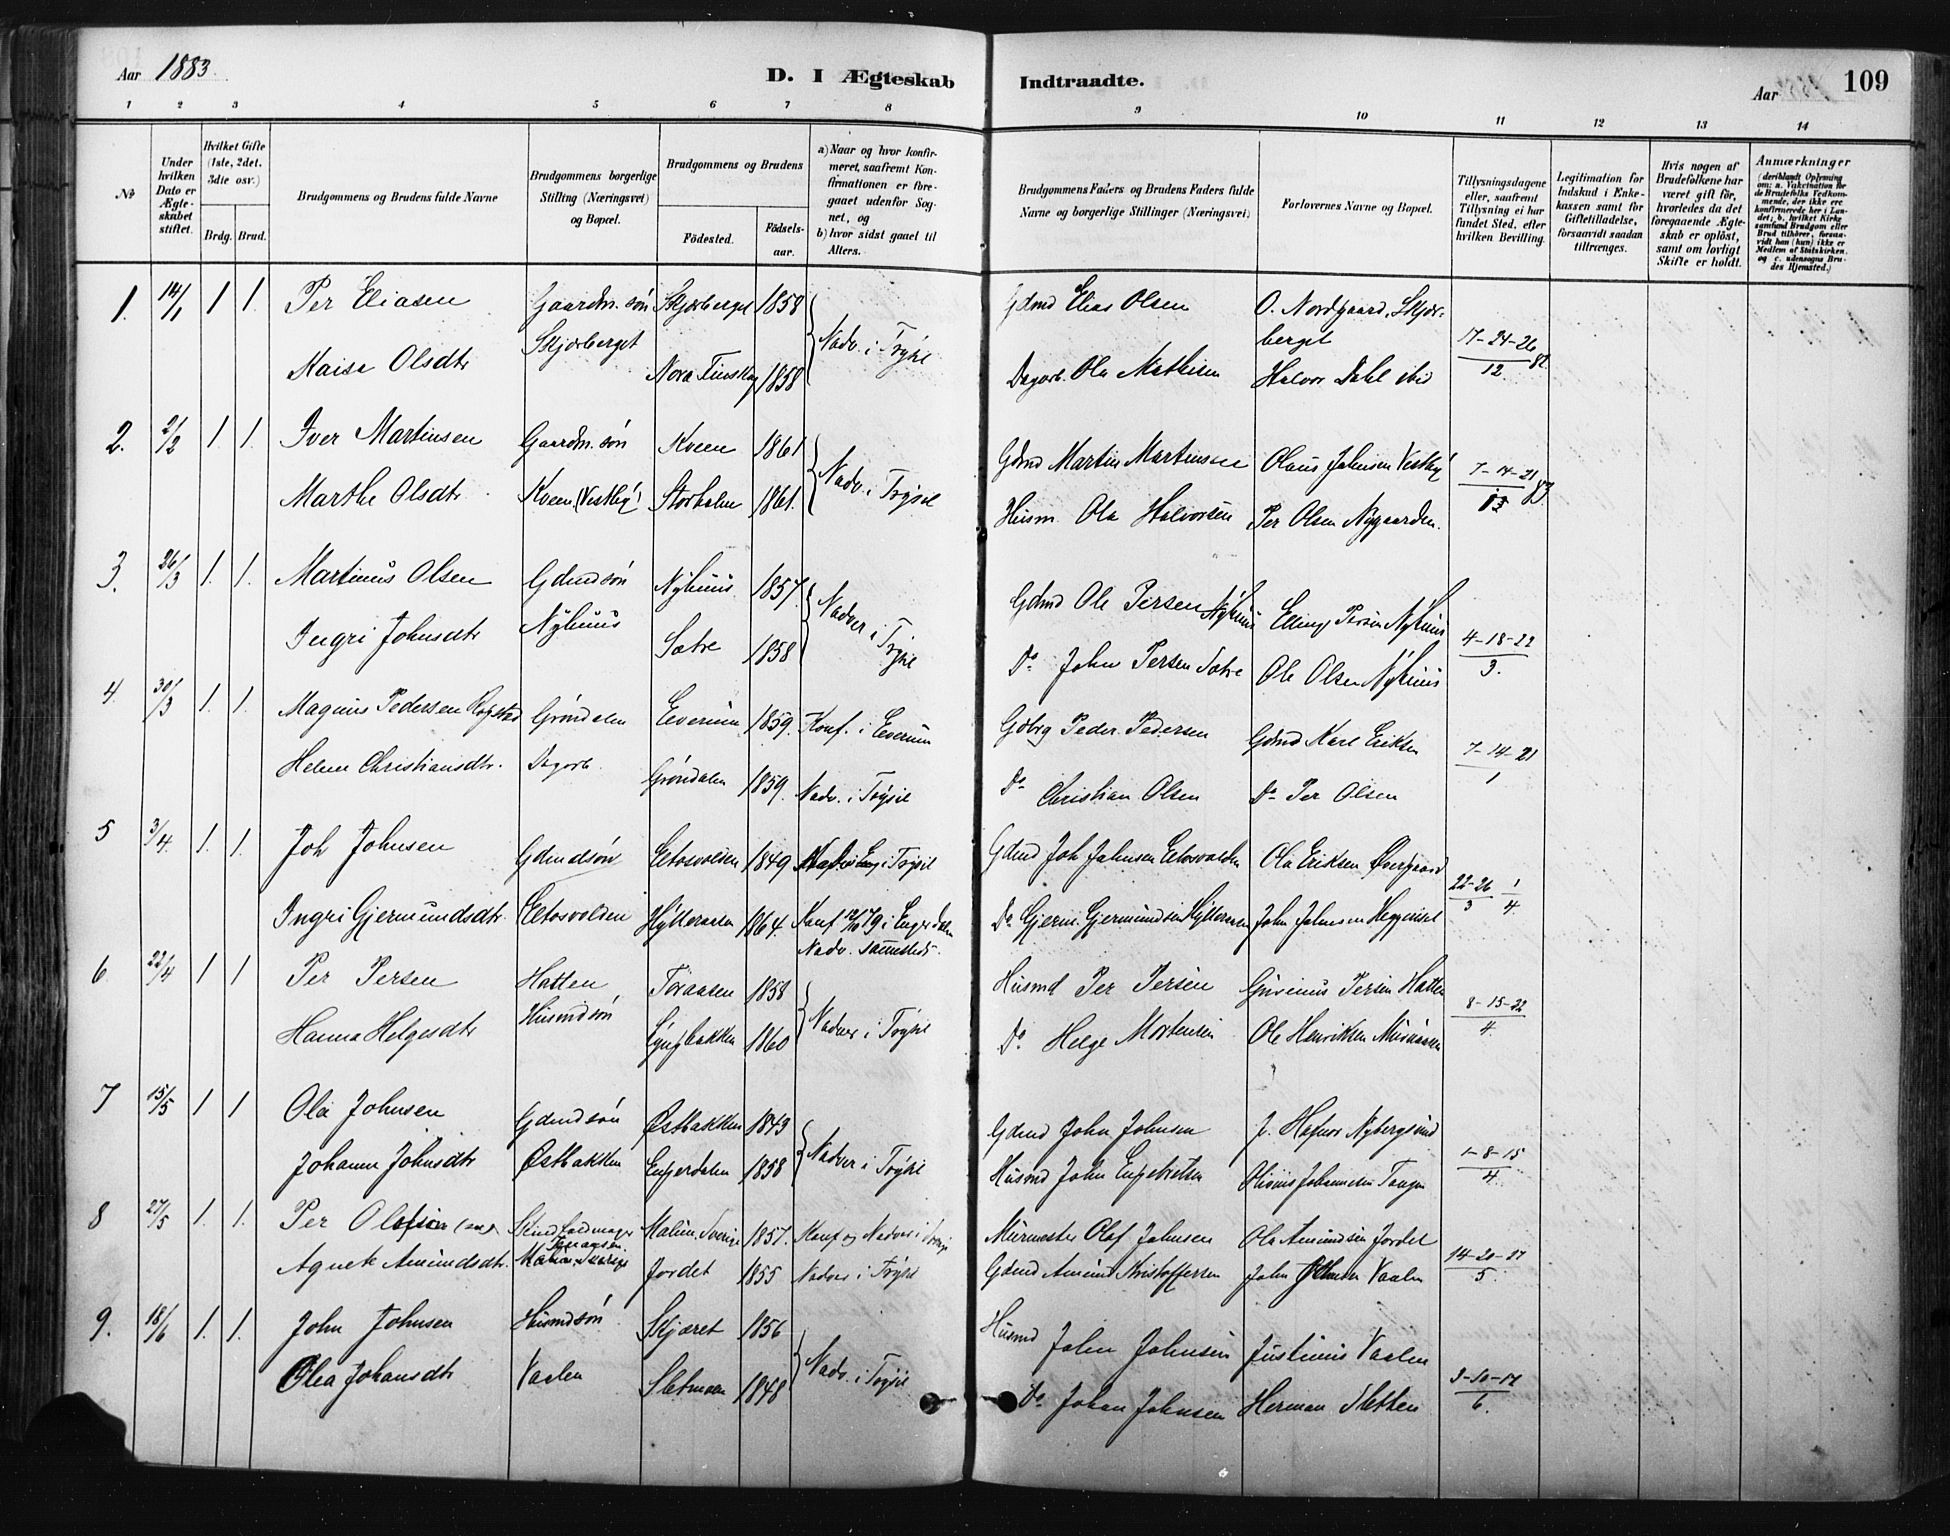 Aar 1883.
D. I Ægteskab Indtraadte.
Aar
109
1 2 3 4 5 6 7 8 9 10 11 12 13 14
No
Under hvilken Dato er Ægteskabet stiftet.
Hvilket Gifte (1ste, 2det, 3die osv.)
Brdg. Brud.
Brudgommens og Brudens fulde Navne
Brudgommens borgerlige Stilling (Næringsvei) og Bopæl.
Brudgommens og Brudens
Födested.
Födselsaar.
a) Naar og hvor konfirmeret, saafremt Konfirmationen er foregaaet udenfor Sognet, og
b) hvor sidst gaaet til Alters.
Brudgommens Faders og Brudens Faders fulde Navne og borgerlige Stillinger (Næringsvei)
Forlovernes Navne og Bopæl.
Tillysningsdagene eller, saafremt Tillysning ei har fundet Sted, efter hvilken Bevilling.
Legitimation for Indskud i Enkekassen samt for Giftetilladelse, forsaavidt saadan tiltrænges.
Hvis nogen af Brudefolkene har været gift för, hvorledes da det foregaaende Ægteskab er oplöst, samt om lovligt Skifte er holdt.
Anmærkninger
1. 14/1 1 1 Per Eliasen Gaardm. søn Skjærberget 1858 Nadv. i Trysil Gdmd Elias Olsen O. Nordgaard, Skjærberget 17-24-26/12 82
Maisa Olsdtr Skjærberget 1858 Dagarb. Ola Mathisen Halvor Dahl ibid
2. 2/2 1. 1. Iver Martinsen Gaardm. søn Kveen 1861 Nadv. i Trysil Gdmd Martin Martinsen Olaus Johnsen Vestby 7-14-21
Marthe Olsdtr Kveen (Vestby) Storholm 1861. Husm. Ola Halvorsen Per Olsen Nygaarden.
3. 26/3 1. 1. Martinus Olsen Gdmdsøn Nyhuus 1857. Nadver i Trysil Gdmd Ole Persen Nyhuus Elling Persen Nyhuus 4-18-22/3.
Ingri Johnsdtr Nyhuus Sætre 1858 Do John Persen Sætre Ole Olsen Nyhuus
4. 30/3 1. 1. Magnus Pedersen Grøndalen Elverum 1859. Konf. i Elverum Gdbrg Peder Pedersen Gdmd Karl Eriksen 7-14-21/1
Helene Christiansdtr. Dagarb. Grøndalen 1859. Nadv. i Trysil Do Christian Olsen Do Per Olsen
5 3/4. 1. 1. Joh Johnsen Gdmdsøn Eltosvolden 1849 i Trysil Gdmd Joh Johnsen Eltosvolden Ola Eriksen Øvergaard 22-26/3 1/4.
Ingri Gjermundsdtr. Eltosvolden Hytteraasen 1864. Konf 12/10 79 i Engerdalen Nadv. sammesteds. Do Gjerm. Gjermundsen Hytteraasen John Johnsen
6 22/4 1 1 Per Persen Hatten Toraasen 1858 Nadver i Trysil Husmd Per Persen Persen Hatten 8-15-22/4.
Hanna Helgesdtr Husmdsøn Lyngbakken 1860 Do Helge Mortensen Ole Henriksen
7 15/5 1 1 Ola Johnsen Gdmdsøn Østbakken 1843 Nadver i Trysil Gdmd John Johnsen J. Hafnor Nybergsund 1-8-15/4
Johanne Johnsdtr Østbakken Engerdalen 1858 Husmd John Engebretsen Johannesen Tangen
8 27/5 1. 1. Per Olofsson Malung, Sverige 1857. Konf og Nadver i Sverige Murmester Olof Johnsen Ola Amundsen Jordet 14-20-27/5.
Agnete Amundsdtr. Jordet 1855 Nadver i Trysil Gdmd Amund Kristoffersen John Vaalen
9. 18/6 1. 1. John Johnsen Husmdsøn Skjæret 1856 Nadv. i Trysil Husmd John Johnsen Justinus Vaalen 3-10-17/6.
Olea Johansdtr Vaalen Sletmoen 1848 Do Johan Johnsen Herman Sletten